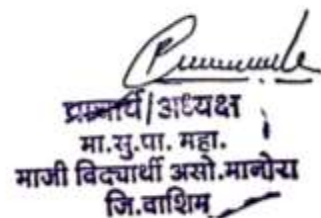 प्राचार्य/अध्यक्ष
मा.सु.पा. महा.
माजी विद्यार्थी असो.मानोरा
जि.वाशिम